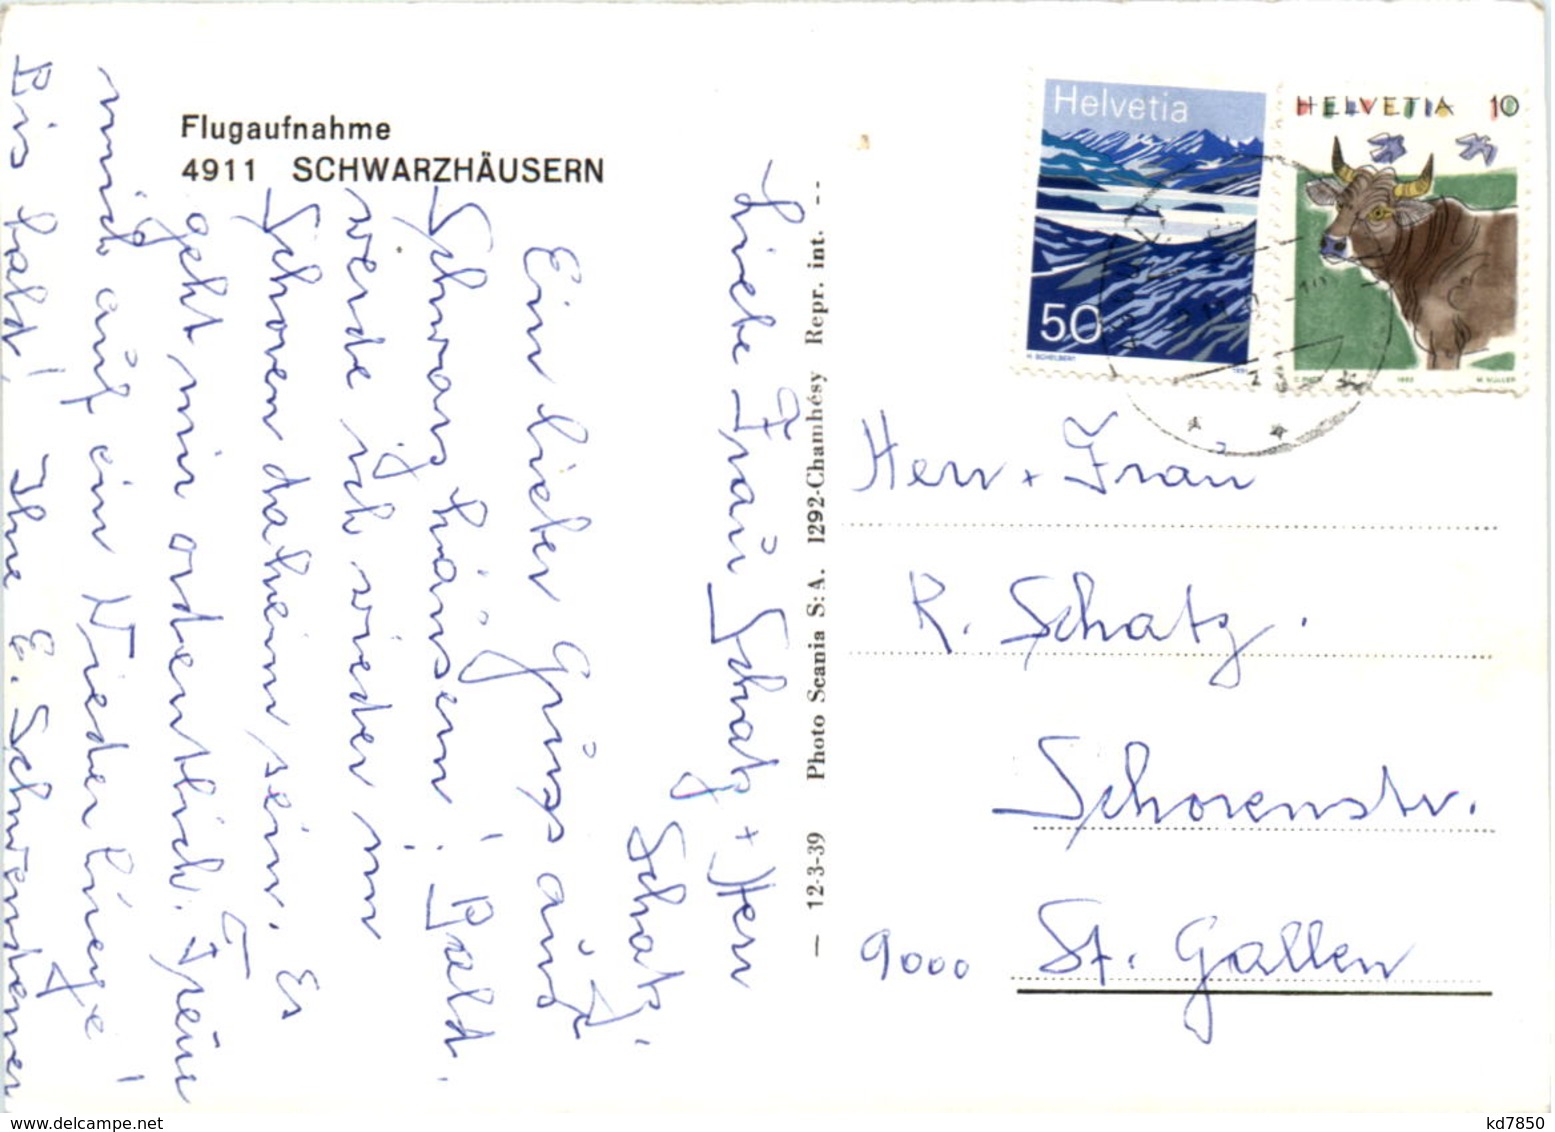 Flugaufnahme
4911 SCHWARZHÄUSERN
Liebe Frau Schatz + Herr
Schatz!
Ein lieber Gruss aus
Schwarzhäusern! Bald
werde ich wieder im
Schoren daheim sein. Es
geht mir ordentlich. Freue
mich auf ein Wiedersehen!
Bis bald! Ihre E.
Photo Scania S.A. 1292-Chambésy Repr. int. --
— 12-3-39
Helvetia
50
H. SCHELBERT
HELVETIA 10
M. MULLER
Herr + Frau
R. Schatz.
Schorenstr.
9000 St. Gallen
www.delcampe.net
kd7850